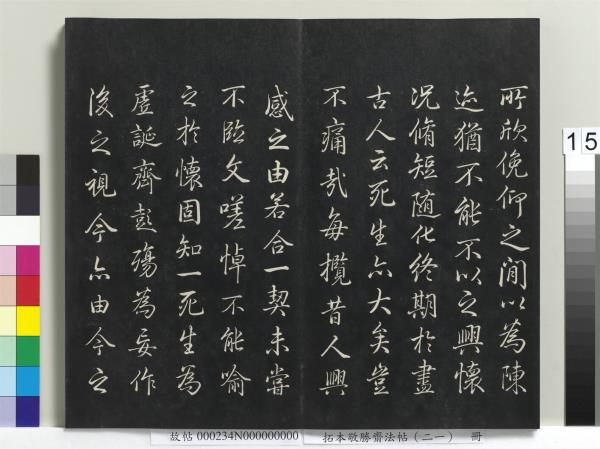 所欣俛仰之間以為陳
迹猶不能不以之興懷
况脩短随化終期於盡
古人云死生亦大矣豈
不痛哉每攬昔人興
感之由若合一契未嘗
不臨文嗟悼不能喻
之於懷固知一死生為
虛誕齊彭殤為妄作
後之視今亦由今之
15
故帖 000234N000000000 拓本敬勝齋法帖（二一） 冊